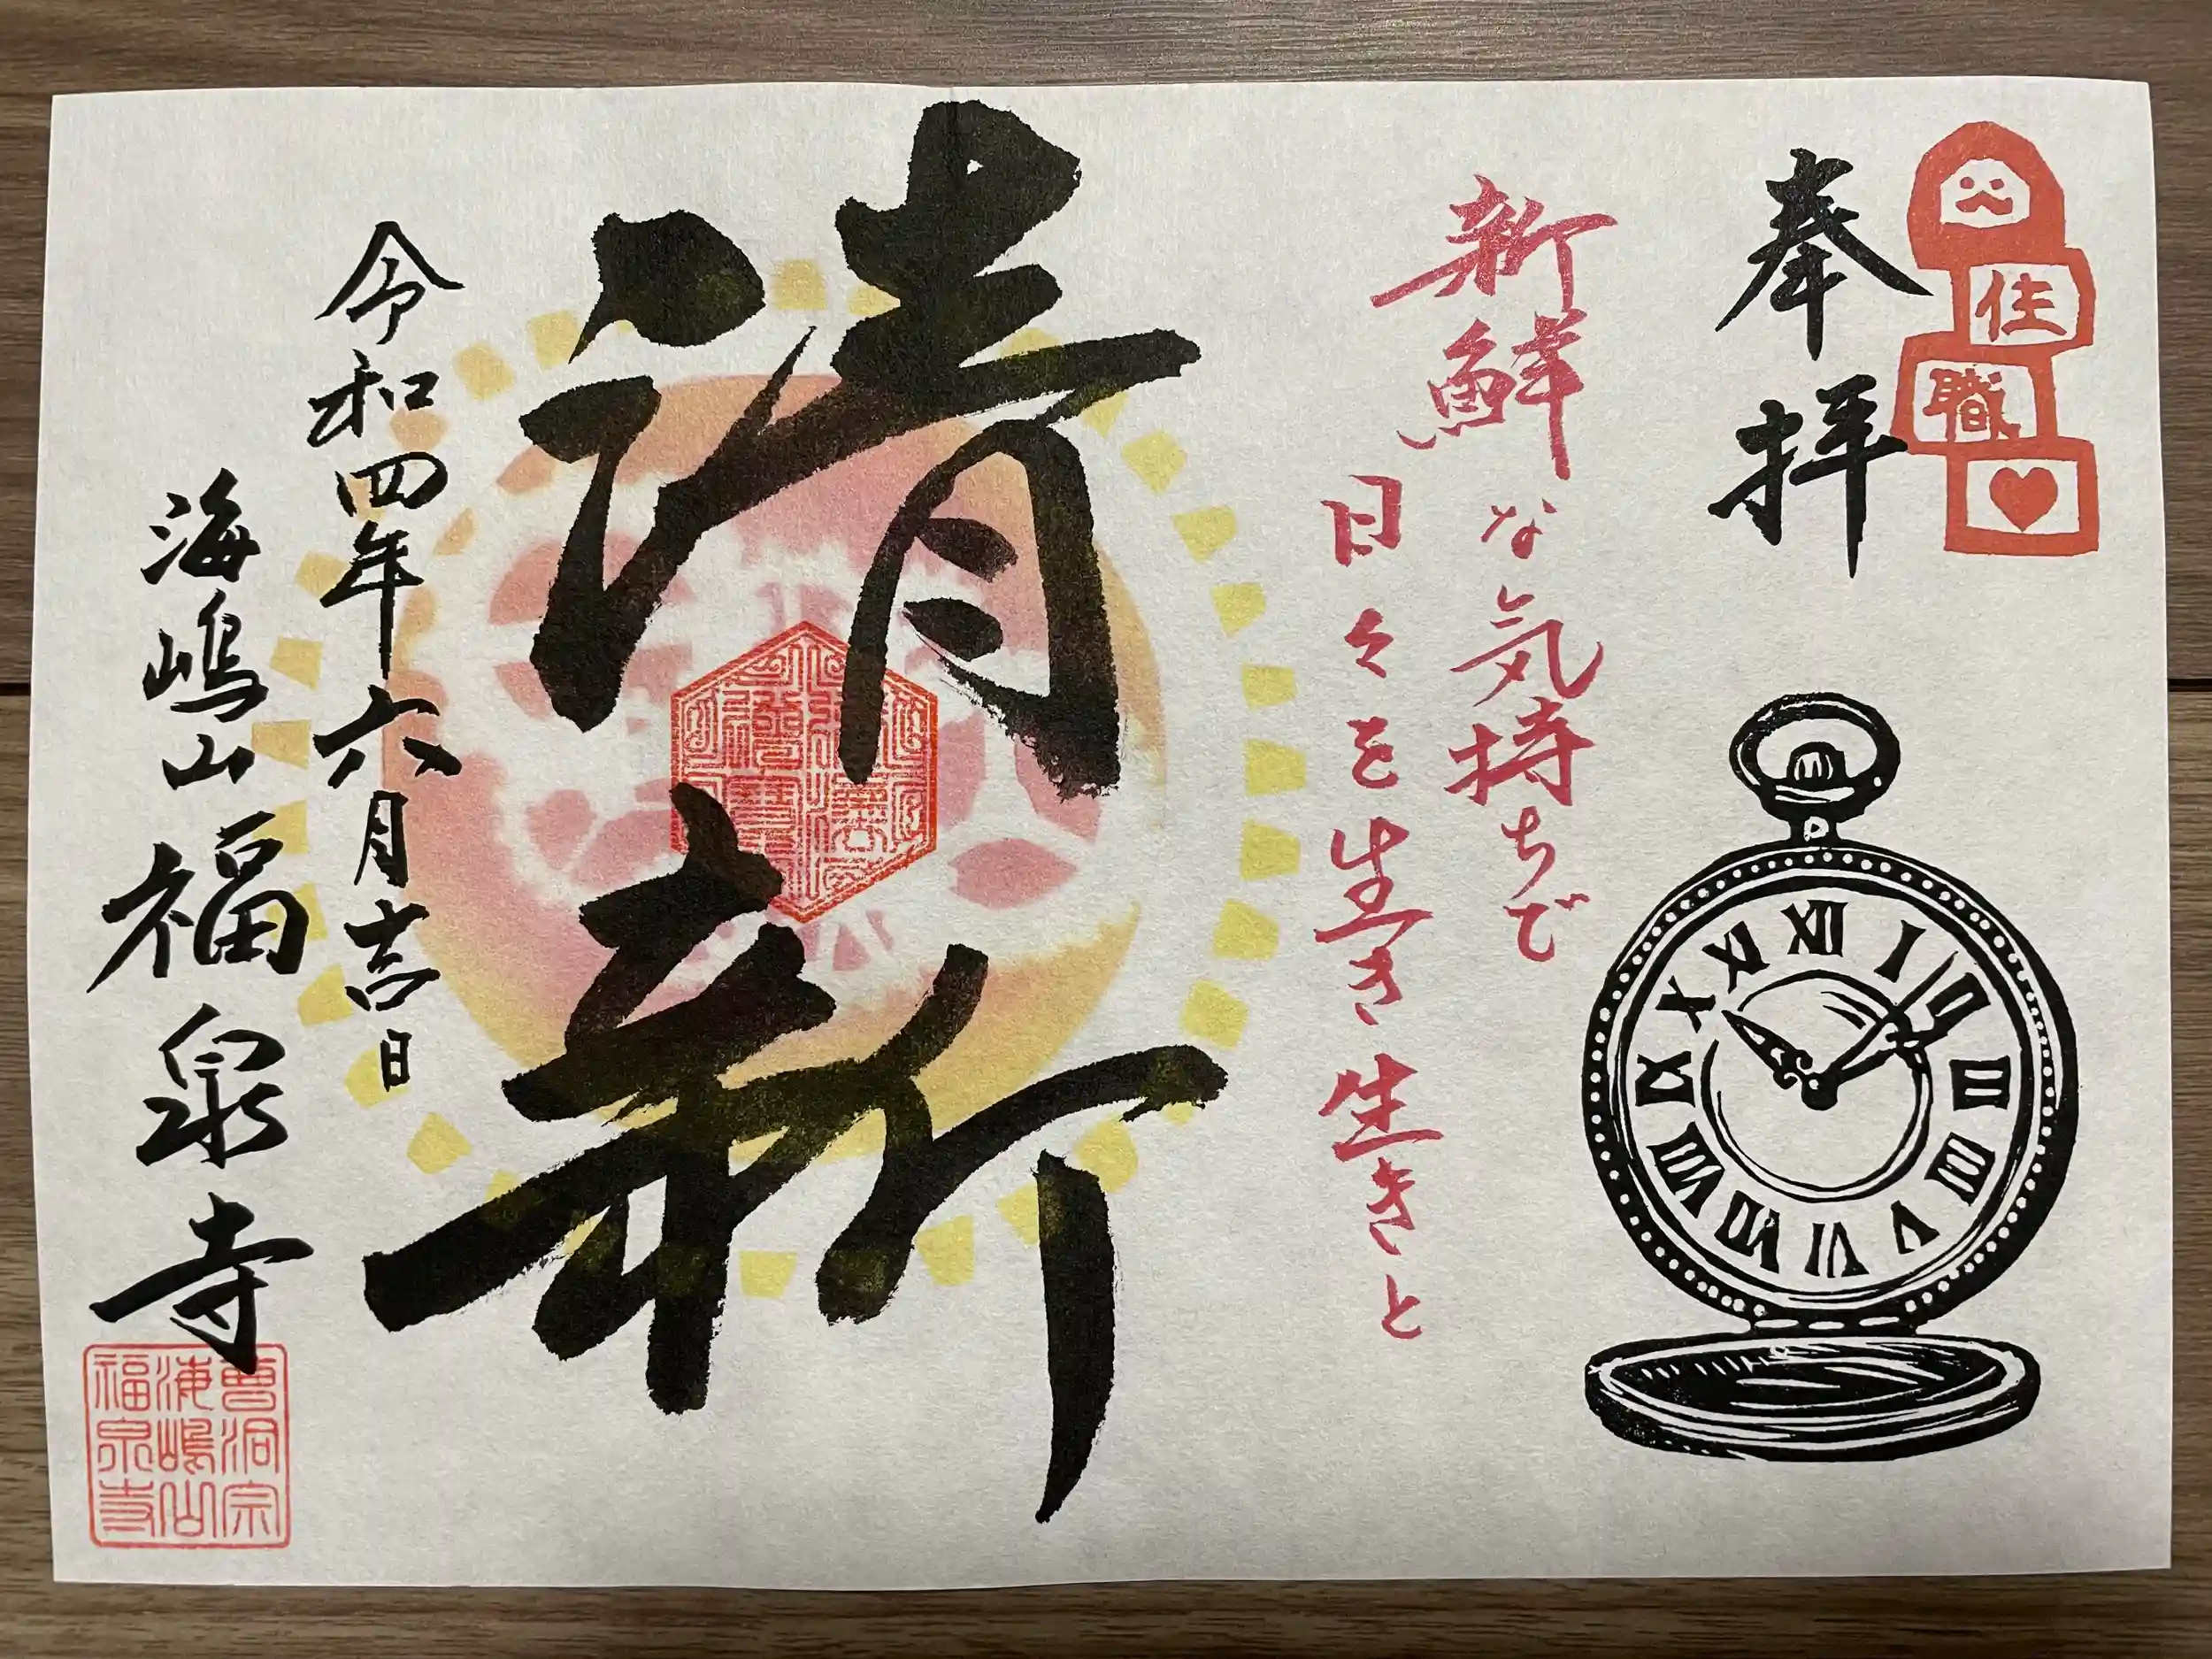 奉拝
住職
新鮮な気持ちで
日々を生き生きと
清新
令和四年六月吉日
海嶋山福泉寺
曹洞宗
海嶋山
福泉寺
XII
I
II
III
IIII
V
VI
VII
VIII
IX
X
XI